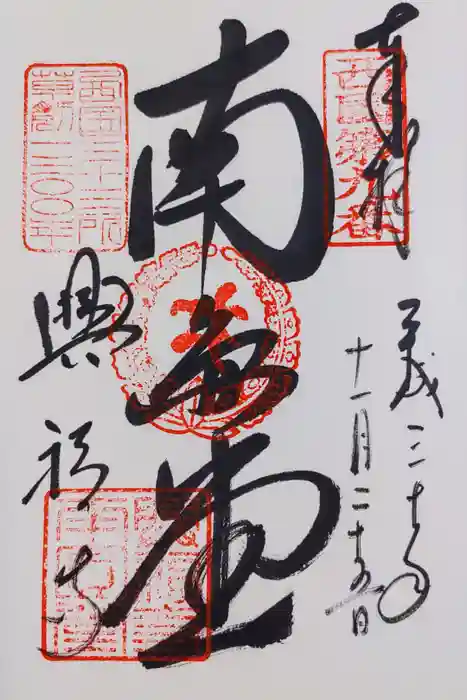 奉拝
西国第九番
平成三十年
十一月二十五日
南圓堂
西国三十三所
草創一三〇〇年
興福寺